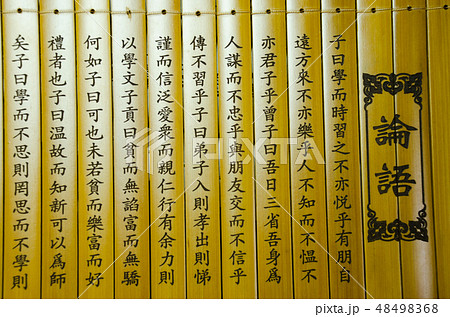 論語
子曰學而時習之不亦悦乎有朋自
遠方來不亦樂乎人不知而不慍不
亦君子乎曾子曰吾日三省吾身爲
人謀而不忠乎與朋友交而不信乎
傳不習乎子曰弟子入則孝出則悌
謹而信泛愛衆而親仁行有余力則
以學文子貢曰貧而無諂富而無驕
何如子曰可也未若貧而樂富而好
禮者也子曰温故而知新可以爲師
矣子曰學而不思則罔思而不學則
pixta.jp - 48498368